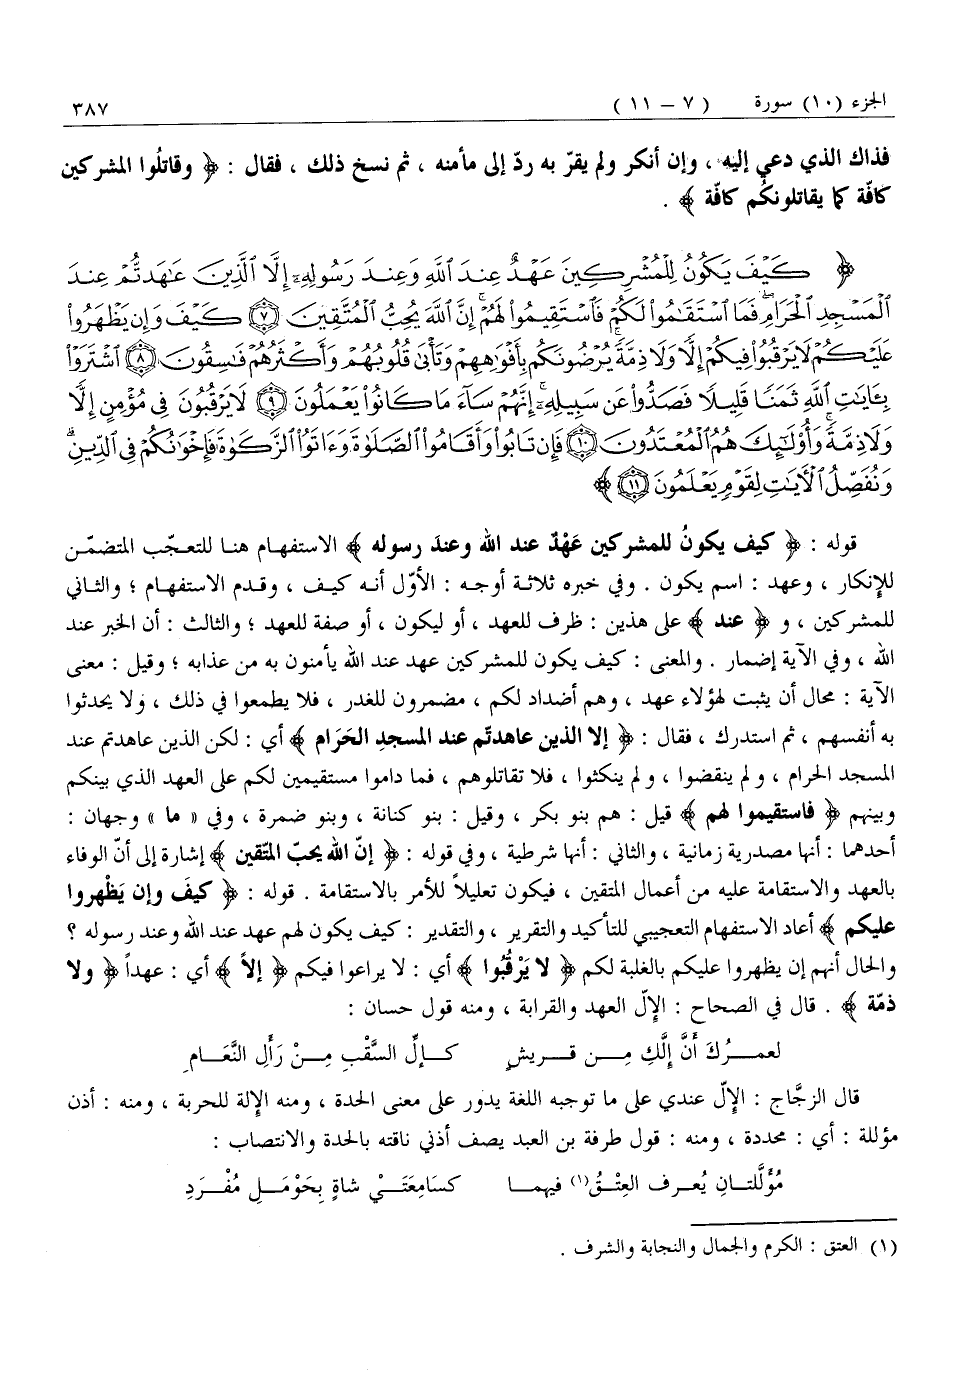 الجزء (١٠) سورة (٧ – ١١) ٣٨٧
فذاك الذي دعي إليه ، وإن أنكر ولم يقرّ به ردّ إلى مأمنه ، ثم نسخ ذلك ، فقال : ﴿ وقاتلُوا المشركين
كافّة كما يقاتلونكُم كافّة ﴾ .
﴿ كَيْفَ يَكُونُ لِلْمُشْرِكِينَ عَهْدٌ عِندَ ٱللَّهِ وَعِندَ رَسُولِهِۦٓ إِلَّا ٱلَّذِينَ عَٰهَدتُّمْ عِندَ
ٱلْمَسْجِدِ ٱلْحَرَامِۖ فَمَا ٱسْتَقَٰمُوا۟ لَكُمْ فَٱسْتَقِيمُوا۟ لَهُمْۚ إِنَّ ٱللَّهَ يُحِبُّ ٱلْمُتَّقِينَ ٧ كَيْفَ وَإِن يَظْهَرُوا۟
عَلَيْكُمْ لَا يَرْقُبُوا۟ فِيكُمْ إِلًّا وَلَا ذِمَّةًۚ يُرْضُونَكُم بِأَفْوَٰهِهِمْ وَتَأْبَىٰ قُلُوبُهُمْ وَأَكْثَرُهُمْ فَٰسِقُونَ ٨ ٱشْتَرَوْا۟
بِـَٔايَٰتِ ٱللَّهِ ثَمَنًا قَلِيلًا فَصَدُّوا۟ عَن سَبِيلِهِۦٓۚ إِنَّهُمْ سَآءَ مَا كَانُوا۟ يَعْمَلُونَ ٩ لَا يَرْقُبُونَ فِى مُؤْمِنٍ إِلًّا
وَلَا ذِمَّةًۚ وَأُو۟لَٰٓئِكَ هُمُ ٱلْمُعْتَدُونَ ١٠ فَإِن تَابُوا۟ وَأَقَامُوا۟ ٱلصَّلَوٰةَ وَءَاتَوُا۟ ٱلزَّكَوٰةَ فَإِخْوَٰنُكُمْ فِى ٱلدِّينِۗ
وَنُفَصِّلُ ٱلْءَايَٰتِ لِقَوْمٍ يَعْلَمُونَ ١١ ﴾
قوله : ﴿ كيف يكونُ للمشركين عَهْدٌ عند الله وعندَ رسوله ﴾ الاستفهام هنا للتعجّب المتضمّن
للإنكار ، وعهد : اسم يكون . وفي خبره ثلاثة أوجه : الأوّل أنه كيف ، وقدم الاستفهام ؛ والثاني
للمشركين ، و ﴿ عند ﴾ على هذين : ظرف للعهد ، أو ليكون ، أو صفة للعهد ؛ والثالث : أن الخبر عند
الله ، وفي الآية إضمار . والمعنى : كيف يكون للمشركين عهد عند الله يأمنون به من عذابه ؛ وقيل : معنى
الآية : محال أن يثبت لهؤلاء عهد ، وهم أضداد لكم ، مضمرون للغدر ، فلا يطمعوا في ذلك ، ولا يحدثوا
به أنفسهم ، ثم استدرك ، فقال : ﴿ إلا الذين عاهدتّم عند المسجد الحَرَام ﴾ أي : لكن الذين عاهدتم عند
المسجد الحرام ، ولم ينقضوا ، ولم ينكثوا ، فلا تقاتلوهم ، فما داموا مستقيمين لكم على العهد الذي بينكم
وبينهم ﴿ فاستقيموا لهم ﴾ قيل : هم بنو بكر ، وقيل : بنو كنانة ، وبنو ضمرة ، وفي « ما » وجهان :
أحدهما : أنها مصدرية زمانية ، والثاني : أنها شرطية ، وفي قوله : ﴿ إنّ الله يحبّ المتّقين ﴾ إشارة إلى أنّ الوفاء
بالعهد والاستقامة عليه من أعمال المتقين ، فيكون تعليلاً للأمر بالاستقامة . قوله : ﴿ كيفَ وإن يَظْهروا
عليكم ﴾ أعاد الاستفهام التعجيبي للتأكيد والتقرير ، والتقدير : كيف يكون لهم عهد عند الله وعند رسوله ؟
والحال أنهم إن يظهروا عليكم بالغلبة لكم ﴿ لا يَرْقُبُوا ﴾ أي : لا يراعوا فيكم ﴿ إلاًّ ﴾ أي : عهداً ﴿ ولا
ذمّة ﴾ . قال في الصحاح : الإلّ العهد والقرابة ، ومنه قول حسان :
لعمـرُكَ أَنَّ إلَّكِ مِـن قـريشٍ كـإلِّ السَّقْبِ مِـنْ رَأْلِ النَّعَـامِ
قال الزجّاج : الإلّ عندي على ما توجبه اللغة يدور على معنى الحدة ، ومنه الإلة للحربة ، ومنه : أذن
مؤللة : أي : محددة ، ومنه : قول طرفة بن العبد يصف أذني ناقته بالحدة والانتصاب :
مُؤَلَّلتـانِ يُعـرف العِتْـقُ(١) فيهمـا كسَامِعَتَـيْ شاةٍ بِحَوْمَـلِ مُفْـرَدِ
(١) العتق : الكرم والجمال والنجابة والشرف .